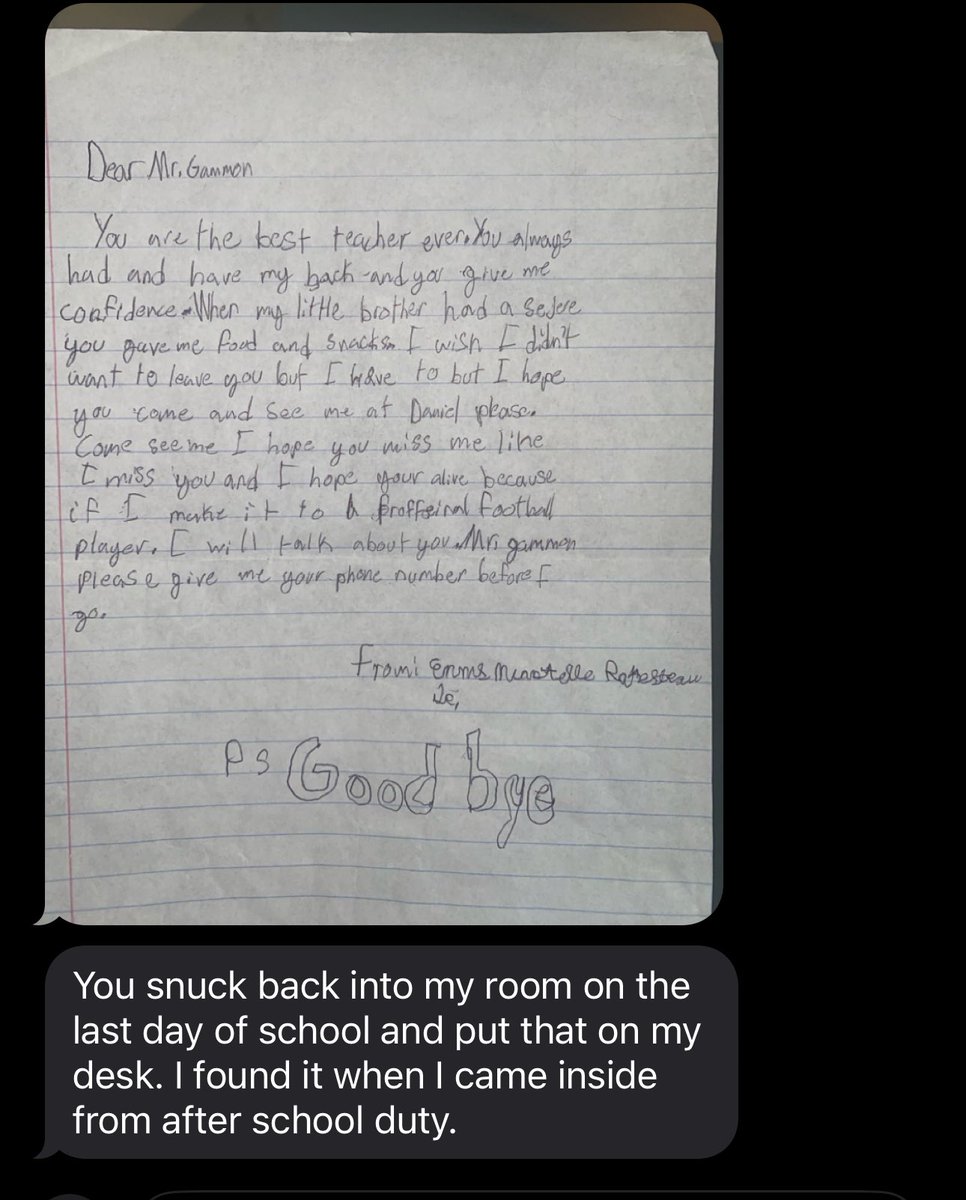 Dear Mr. Gammon
You are the best teacher ever. You always
had and have my back and you give me
confidence. When my little brother had a sejere
you gave me food and snacks. I wish I didn't
want to leave you but I have to but I hope
you come and see me at Daniel please.
Come see me I hope you miss me like
I miss you and I hope your alive because
if I make it to a proffeinal football
player. I will talk about you. Mr. gammon
please give me your phone number before I
go.
From:
PS Good bye
You snuck back into my room on the
last day of school and put that on my
desk. I found it when I came inside
from after school duty.